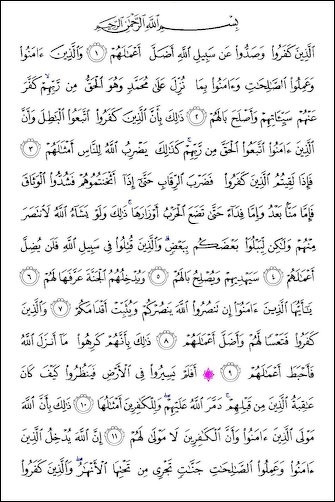 بِسْمِ ٱللَّهِ ٱلرَّحْمَٰنِ ٱلرَّحِيمِ
ٱلَّذِينَ كَفَرُوا۟ وَصَدُّوا۟ عَن سَبِيلِ ٱللَّهِ أَضَلَّ أَعْمَٰلَهُمْ ١ وَٱلَّذِينَ ءَامَنُوا۟
وَعَمِلُوا۟ ٱلصَّٰلِحَٰتِ وَءَامَنُوا۟ بِمَا نُزِّلَ عَلَىٰ مُحَمَّدٍ وَهُوَ ٱلْحَقُّ مِن رَّبِّهِمْ ۙ كَفَّرَ
عَنْهُمْ سَيِّـَٔاتِهِمْ وَأَصْلَحَ بَالَهُمْ ٢ ذَٰلِكَ بِأَنَّ ٱلَّذِينَ كَفَرُوا۟ ٱتَّبَعُوا۟ ٱلْبَٰطِلَ وَأَنَّ
ٱلَّذِينَ ءَامَنُوا۟ ٱتَّبَعُوا۟ ٱلْحَقَّ مِن رَّبِّهِمْ ۚ كَذَٰلِكَ يَضْرِبُ ٱللَّهُ لِلنَّاسِ أَمْثَٰلَهُمْ ٣
فَإِذَا لَقِيتُمُ ٱلَّذِينَ كَفَرُوا۟ فَضَرْبَ ٱلرِّقَابِ حَتَّىٰٓ إِذَآ أَثْخَنتُمُوهُمْ فَشُدُّوا۟ ٱلْوَثَاقَ
فَإِمَّا مَنًّۢا بَعْدُ وَإِمَّا فِدَآءً حَتَّىٰ تَضَعَ ٱلْحَرْبُ أَوْزَارَهَا ۚ ذَٰلِكَ وَلَوْ يَشَآءُ ٱللَّهُ لَٱنتَصَرَ
مِنْهُمْ وَلَٰكِن لِّيَبْلُوَا۟ بَعْضَكُم بِبَعْضٍ ۗ وَٱلَّذِينَ قُتِلُوا۟ فِى سَبِيلِ ٱللَّهِ فَلَن يُضِلَّ
أَعْمَٰلَهُمْ ٤ سَيَهْدِيهِمْ وَيُصْلِحُ بَالَهُمْ ٥ وَيُدْخِلُهُمُ ٱلْجَنَّةَ عَرَّفَهَا لَهُمْ ٦
يَٰٓأَيُّهَا ٱلَّذِينَ ءَامَنُوٓا۟ إِن تَنصُرُوا۟ ٱللَّهَ يَنصُرْكُمْ وَيُثَبِّتْ أَقْدَامَكُمْ ٧ وَٱلَّذِينَ
كَفَرُوا۟ فَتَعْسًا لَّهُمْ وَأَضَلَّ أَعْمَٰلَهُمْ ٨ ذَٰلِكَ بِأَنَّهُمْ كَرِهُوا۟ مَآ أَنزَلَ ٱللَّهُ
فَأَحْبَطَ أَعْمَٰلَهُمْ ٩ ۞ أَفَلَمْ يَسِيرُوا۟ فِى ٱلْأَرْضِ فَيَنظُرُوا۟ كَيْفَ كَانَ
عَٰقِبَةُ ٱلَّذِينَ مِن قَبْلِهِمْ ۚ دَمَّرَ ٱللَّهُ عَلَيْهِمْ ۖ وَلِلْكَٰفِرِينَ أَمْثَٰلُهَا ١٠ ذَٰلِكَ بِأَنَّ ٱللَّهَ
مَوْلَى ٱلَّذِينَ ءَامَنُوا۟ وَأَنَّ ٱلْكَٰفِرِينَ لَا مَوْلَىٰ لَهُمْ ١١ إِنَّ ٱللَّهَ يُدْخِلُ ٱلَّذِينَ
ءَامَنُوا۟ وَعَمِلُوا۟ ٱلصَّٰلِحَٰتِ جَنَّٰتٍ تَجْرِى مِن تَحْتِهَا ٱلْأَنْهَٰرُ ۖ وَٱلَّذِينَ كَفَرُوا۟